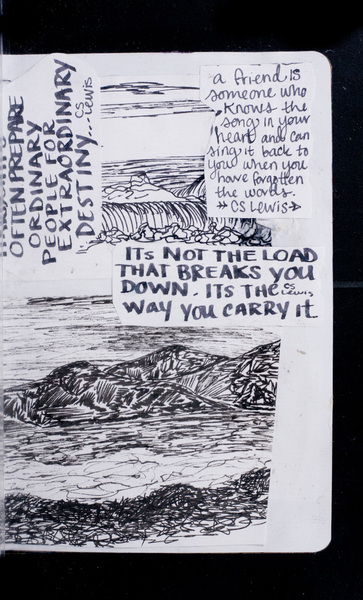 OFTEN PREPARE
ORDINARY
PEOPLE FOR
EXTRAORDINARY
DESTINY... CS
Lewis
a friend is
someone who
knows the
song in your
heart and can
sing it back to
you when you
have forgotten
the words.
CS Lewis
ITS NOT THE LOAD
THAT BREAKS YOU
DOWN. ITS THE CS
Lewis
WAY YOU CARRY It